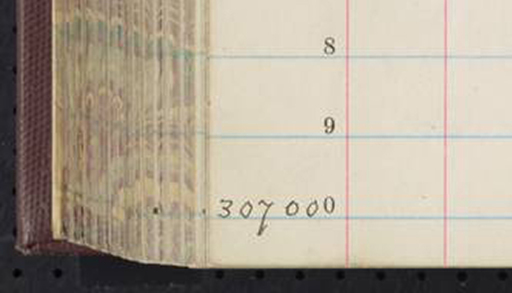 8
9
307000